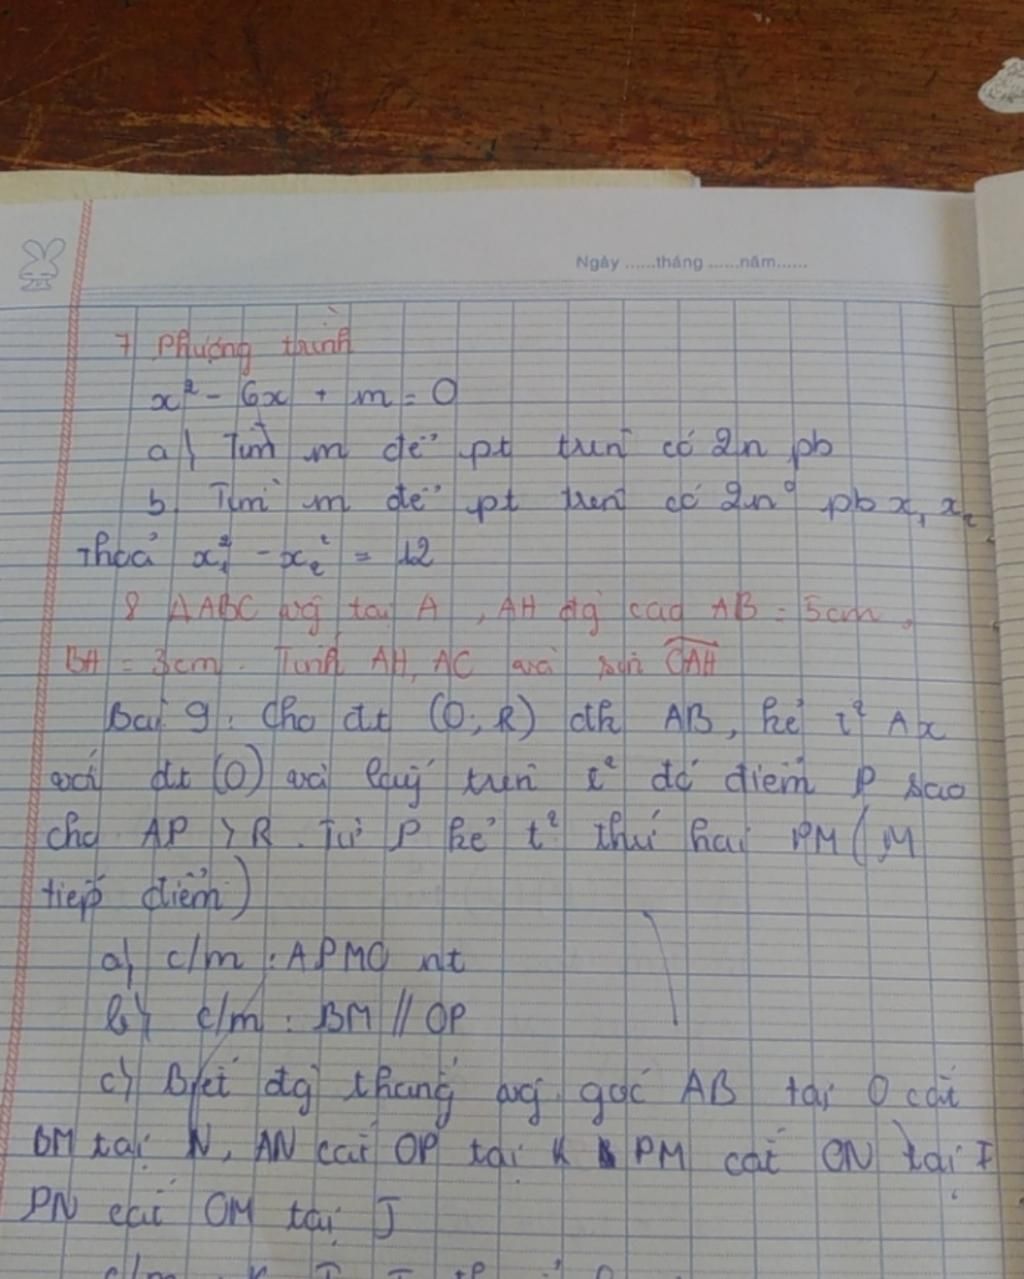 Ngày ......tháng ......năm......
7 Phương trình
x² - 6x + m = 0
a) Tìm m để pt trên có 2n pb
b. Tìm m để pt trên có 2n⁰ pb x₁ x₂
Thoả x₁² - x₂² = 12
8 ΔABC vg tại A, AH đg cao AB = 5cm,
BH = 3cm. Tính AH, AC và sin CAH
Bài 9: Cho đt (O; R) đk AB, kẻ t² Ax
với đt (O) và lấy trên t² đó điểm P sao
cho AP > R. Từ P kẻ t² thứ hai PM (M
tiếp điểm)
a) c/m : APMO nt
b) c/m : BM // OP
c) Biết đg thẳng vg góc AB tại O cắt
BM tại N, AN cắt OP tại K PM cắt ON tại I
PN cắt OM tại J
c/m K I J